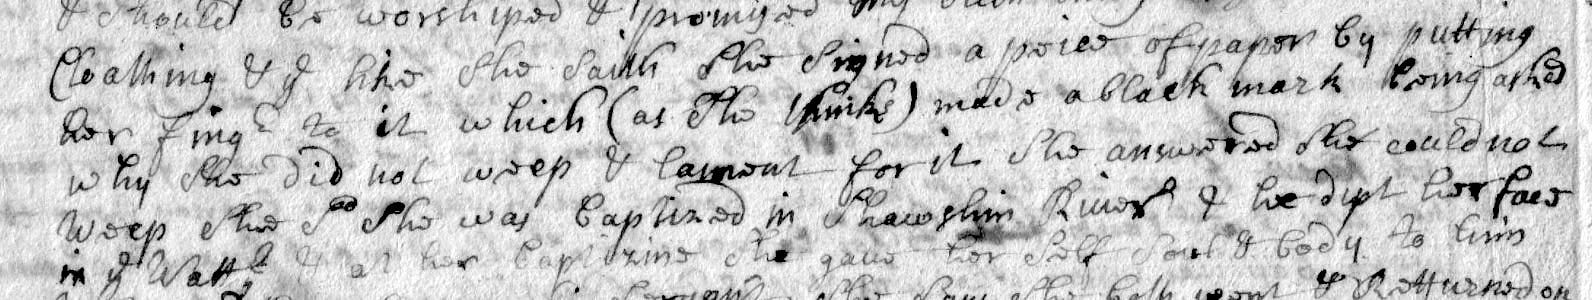 & should be worshiped & promised
Cloathing & ye like she saith she signed a peice of paper by putting
her fingr to it which (as she thinks) made a black mark being asked
why she did not weep & lament for it she answered she could not
weep she sd she was baptized in Shawshin River & he dipt her face
in ye Wattr & at her baptizing she gave her self soul & body to him
she both went & Returned on